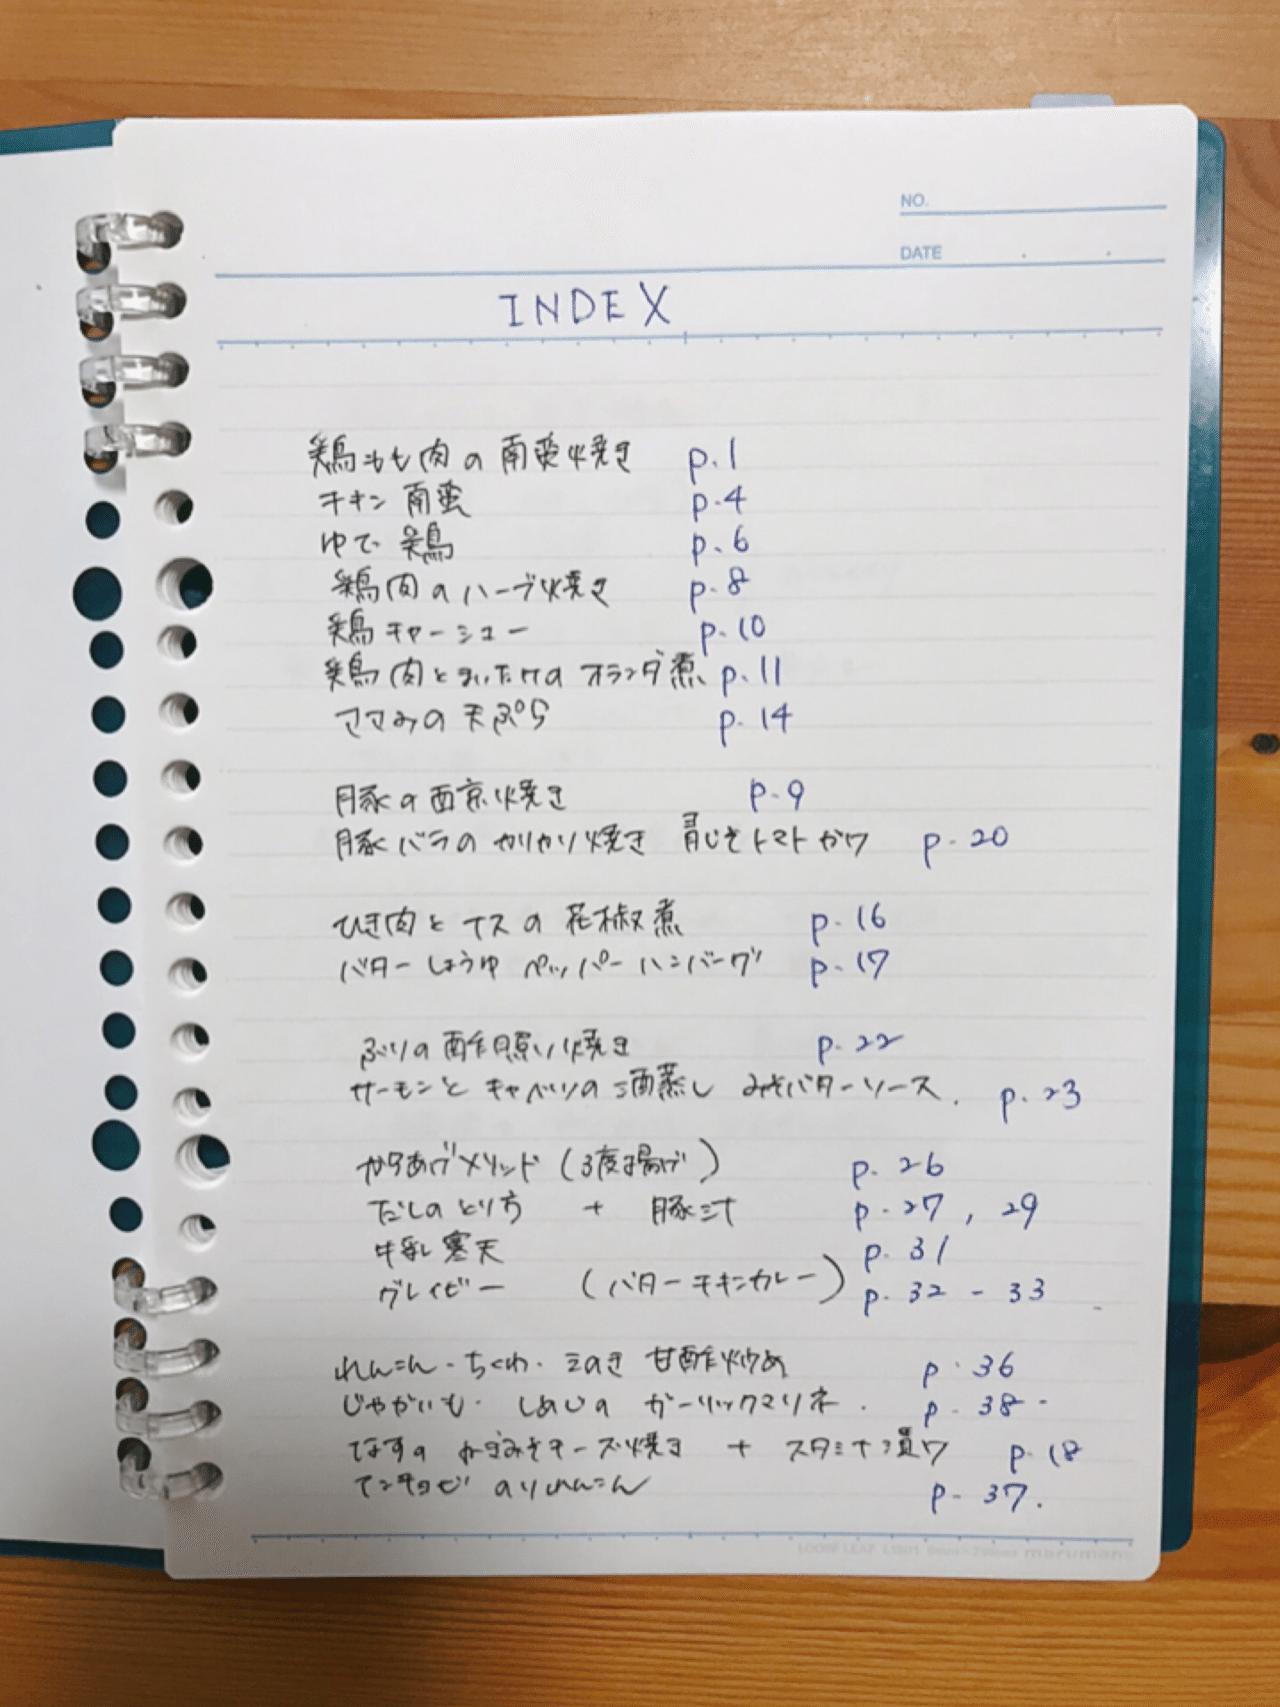 NO.
DATE
INDEX
鶏もも肉の南蛮焼き p.1
チキン南蛮 p.4
ゆで鶏 p.6
鶏肉のハーブ焼き p.8
鶏チャーシュー p.10
鶏肉とまいたけのオランダ煮 p.11
ササみの天ぷら p.14
豚の西京焼き p.9
豚バラのカリカリ焼き 青じそトマトがけ p.20
ひき肉とナスの花椒煮 p.16
バターしょうゆペッパーハンバーグ p.17
ぶりの酢照り焼き p.22
サーモンとキャベツの酒蒸し みそバターソース. p.23
からあげメソッド (3度揚げ) p.26
だしのとり方 + 豚汁 p.27, 29
牛乳寒天 p.31
グレイビー (バターチキンカレー) p.32 - 33
れんこん・ちくわ・えのき 甘酢炒め p.36
じゃがいも・しめじの ガーリックマリネ. p.38
なすの ねぎみそチーズ焼き + スタミナ漬ケ p.18
アンチョビ のりれんこん p.37.
LOOSE LEAF maruman